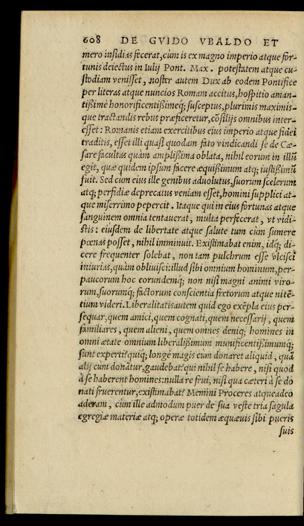 608 DE GVIDO VBALDO ET
mero insidias fecerat, cùm is ex magno imperio atque for-
tunis deiectus in Iulij Pont. Max. potestatem atque cu-
stodiam venisset, noster autem Dux ab eodem Pontifice
per literas atque nuncios Romam accitus, hospitio aman-
tißimè honorificentißimeq; susceptus, plurimis maximis-
que tractandis rebus præficeretur, cõsilijs omnibus inter-
esset: Romanis etiam exercitibus eius imperio atque fidei
traditis, esset illi quasi quodam fato vindicandi se de Cæ-
sare facultas quàm amplißima oblata, nihil eorum in illũ
egit, quæ quidem ipsum facere æquißimum atq; iustißimũ
fuit. Sed cùm eius ille genibus aduolutus, suorum scelerum
atq; perfidiæ deprecatus veniam esset, homini supplici at-
que miserrimo pepercit. Itaque qui in eius fortunas atque
sanguinem omnia tentauerat, multa perfecerat, vt vidi-
stis: eiusdem de libertate atque salute tum cùm sumere
pœnas posset, nihil imminuit. Existimabat enim, idq; di-
cere frequenter solebat, non tam pulchrum esse vlcisci
iniurias, quàm obliuisci: illud sibi omnium hominum, per-
paucorum hoc eorundemq; non nisi magni animi viro-
rum, suorumq; factorum conscientia fretorum atque nitẽ-
tium videri. Liberalitatis autem quid ego exẽpla eius per-
sequar, quem amici, quem cognati, quem necessarij, quem
familiares, quem alieni, quem omnes deniq; homines in
omni ætate omnium liberalißimum munificentißimumq;
sunt experti? quiq; longè magis cum donaret aliquid, quã
alij cùm donãtur, gaudebat: qui nihil se habere, nisi quod
à se haberent homines: nulla re frui, nisi qua cæteri à se do
nati fruerentur, existimabat? Memini Proceres atque adeo
aderam, cùm ille admodum puer de sua veste tria sagula
egregiæ materiæ atq; operæ totidem æquæuis sibi pueris
suis